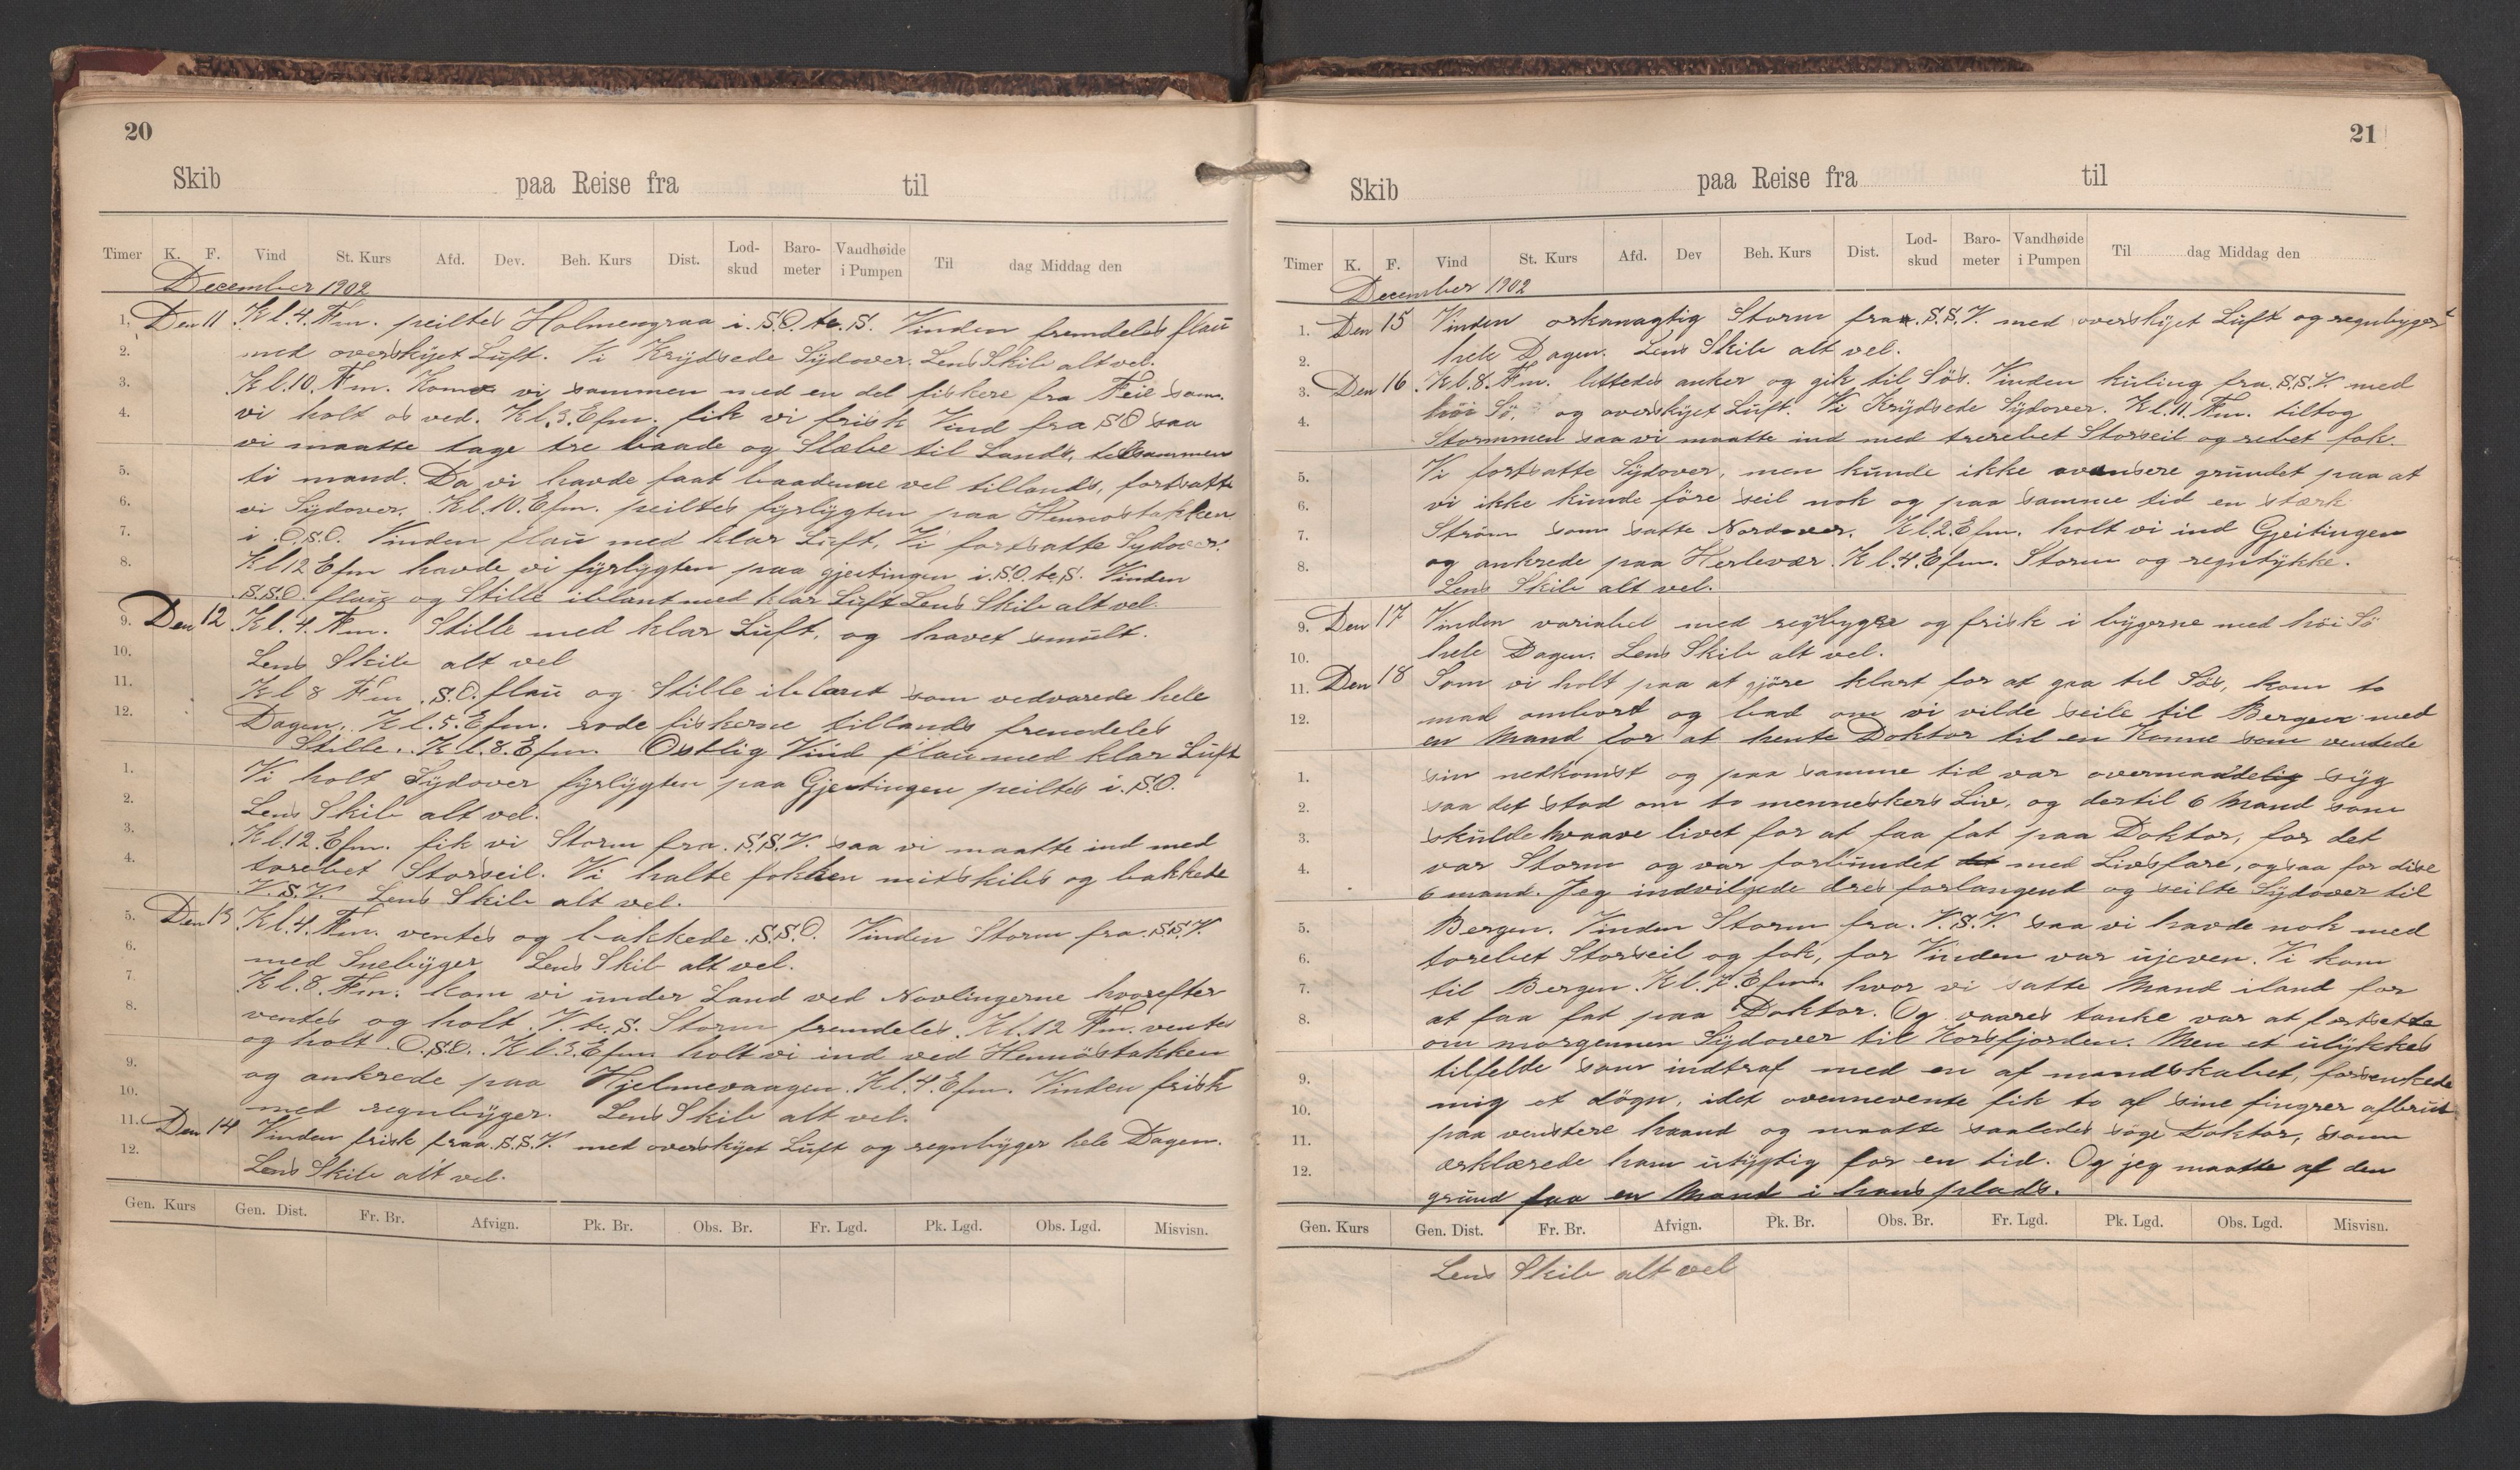 20
Skib paa Reise fra til
Timer K. F. Vind St. Kurs Afd. Dev. Beh. Kurs Dist. Lod-skud Baro-meter Vandhøide i Pumpen Til dag Middag den
December 1902
1. Den 11 Kl. 4. Fm. peiltes Holmengraa i. S.O. te. S. Vinden fremdeles flau
2. med overskyet Luft. Vi Krydsede Sydover. Lens Skib alt vel.
3. Kl. 10. Fm. Kom vi sammen med en del fiskere fra Feie som
4. vi holt os ved. Kl. 3. Efm. fik vi frisk Vind fra SO saa
vi maatte tage tre baade og Slæbe til Lands, tilsammen
5. ti mand. Da vi havde faat baadenne vel tillands, fortsatte
6. vi Sydover. Kl. 10. Efm. peiltes fyrlygten paa Hennøstakken
7. i O.S.O. Vinden flau med klar Luft. Vi fortsatte Sydover.
8. Kl 12 Efm havde vi fyrlygten paa gjeitingen i. S.O. te. S. Vinden
S.S.O. flau og Stille iblant med klar Luft Lens Skib alt vel.
9. Den 12 Kl. 4. Fm. Stille med klar Luft, og havet smult.
10. Lens Skib alt vel
11. Kl 8 Fm. S.O. flau og Stille iblant som vedvarede hele
12. Dagen. Kl. 5. Efm. rode fiskerne tillands fremdeles
Stille. Kl. 8. Efm. Ostlig Vind flau med klar Luft
1. Vi holt Sydover fyrlygten paa Gjeitingen peiltes i. S.O.
2. Lens Skib alt vel.
3. Kl. 12. Efm. fik vi Storm fra. S.S.V. saa vi maatte ind med
4. torebet Storseil. Vi halte fokken mitskibs og bakkede
V.S.V. Lens Skib alt vel.
5. Den 13 Kl. 4. Fm. ventes og bakkede. S.S.O. Vinden Storm fra. S.S.V.
6. med Snebyger Lens Skib alt vel.
7. Kl. 8. Fm. kom vi under Land ved Novlingerne hvorefter
8. ventes og holt. V. te. S. Storm fremdeles. Kl. 12 Fm. ventes
og holt O.S.O. Kl. 3. Efm holt vi ind ved Hennöstakken
9. og ankrede paa Hjelmevaagen. Kl. 4. Efm. Vinden frisk
10. med regnbyger. Lens Skib alt vel.
11. Den 14 Vinden frisk fraa. S.S.V. med overskyet Luft og regnbyger hele Dagen.
12. Lens Skib alt vel.
Gen. Kurs Gen. Dist. Fr. Br. Afvign. Pk. Br. Obs. Br. Fr. Lgd. Pk. Lgd. Obs. Lgd. Misvisn.
21
Skib paa Reise fra til
Timer K. F. Vind St. Kurs Afd. Dev Beh. Kurs Dist. Lod-skud Baro-meter Vandhøide i Pumpen Til dag Middag den
December 1902
1. Den 15 Vinden orkanagtig Storm fra. S.S.V. med overskyet Luft og regnbyger
2. hele Dagen. Lens Skib alt vel.
3. Den 16 Kl. 8. Fm. lettedes anker og gik til Søs. Vinden kuling fra. S.S.V. med
4. höi Sö. og overskyet Luft. Vi Krydsede Sydover. Kl. 11. Fm. tiltog
Stormmen saa vi maatte ind med trerebet Storseil og rebet fok.
5. Vi fortsatte Sydover, men kunde ikke avansere grundet paa at
6. vi ikke kunde före seil nok og paa samme tid en stærk
7. Ström som satte Nordover. Kl. 2. Efm. holt vi ind Gjeitingen
8. og ankrede paa Herlevær. Kl. 4. Efm. Storm og regntykke.
Lens Skib alt vel.
9. Den 17 Vinden variabel med regnbyger og frisk i bygerne med höi Sö
10. hele Dagen. Lens Skib alt vel.
11. Den 18 Som vi holt paa at gjöre klart for at gaa til Søs, kom to
12. mad ombord og bad om vi vilde seile til Bergen med
en Mand for at hente Doktor til en Konne som ventede
1. sin nedkomst og paa samme tid var overmaadelig syg
2. saa det stod om to menneskers Liv, og dertil 6 Mand som
3. skulde vaave livet for at faa fat paa Doktor, for det
4. var Storm og var forbundet med Livsfare, ogsaa for dise
6 mand. Jeg indvilgede dres forlangend og seilte Sydover til
5. Bergen. Vinden Storm fra. V.S.V. saa vi havde nok med
6. torebet Storseil og fok, for Vinden var ujeven. Vi kom
7. til Bergen Kl. 7. Efm. hvor vi satte Mand iland for
8. at faa fat paa Doktor. Og vaares tanke var at fortsette
om morgennen Sydover til Korsfjorden. Men et ulykkes
9. tilfelde som indtraf med en af mandskabet, forsenkede
10. mig et dögn, idet ovennevente fik to af sine fingrer afbrut
11. paa venstere haand og maatte saaledes söge Doktor, som
12. ærklærede ham utygtig for en tid. Og jeg maatte af den
grund faa en Mand i hans plads.
Gen. Kurs Gen. Dist. Fr. Br. Afvign. Pk. Br. Obs. Br. Fr. Lgd. Pk. Lgd. Obs. Lgd. Misvisn.
Lens Skib alt vel